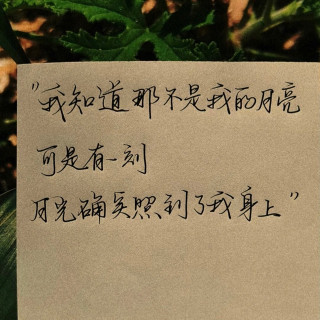 "我知道那不是我的月亮
可是有一刻
月光确实照到了我身上"